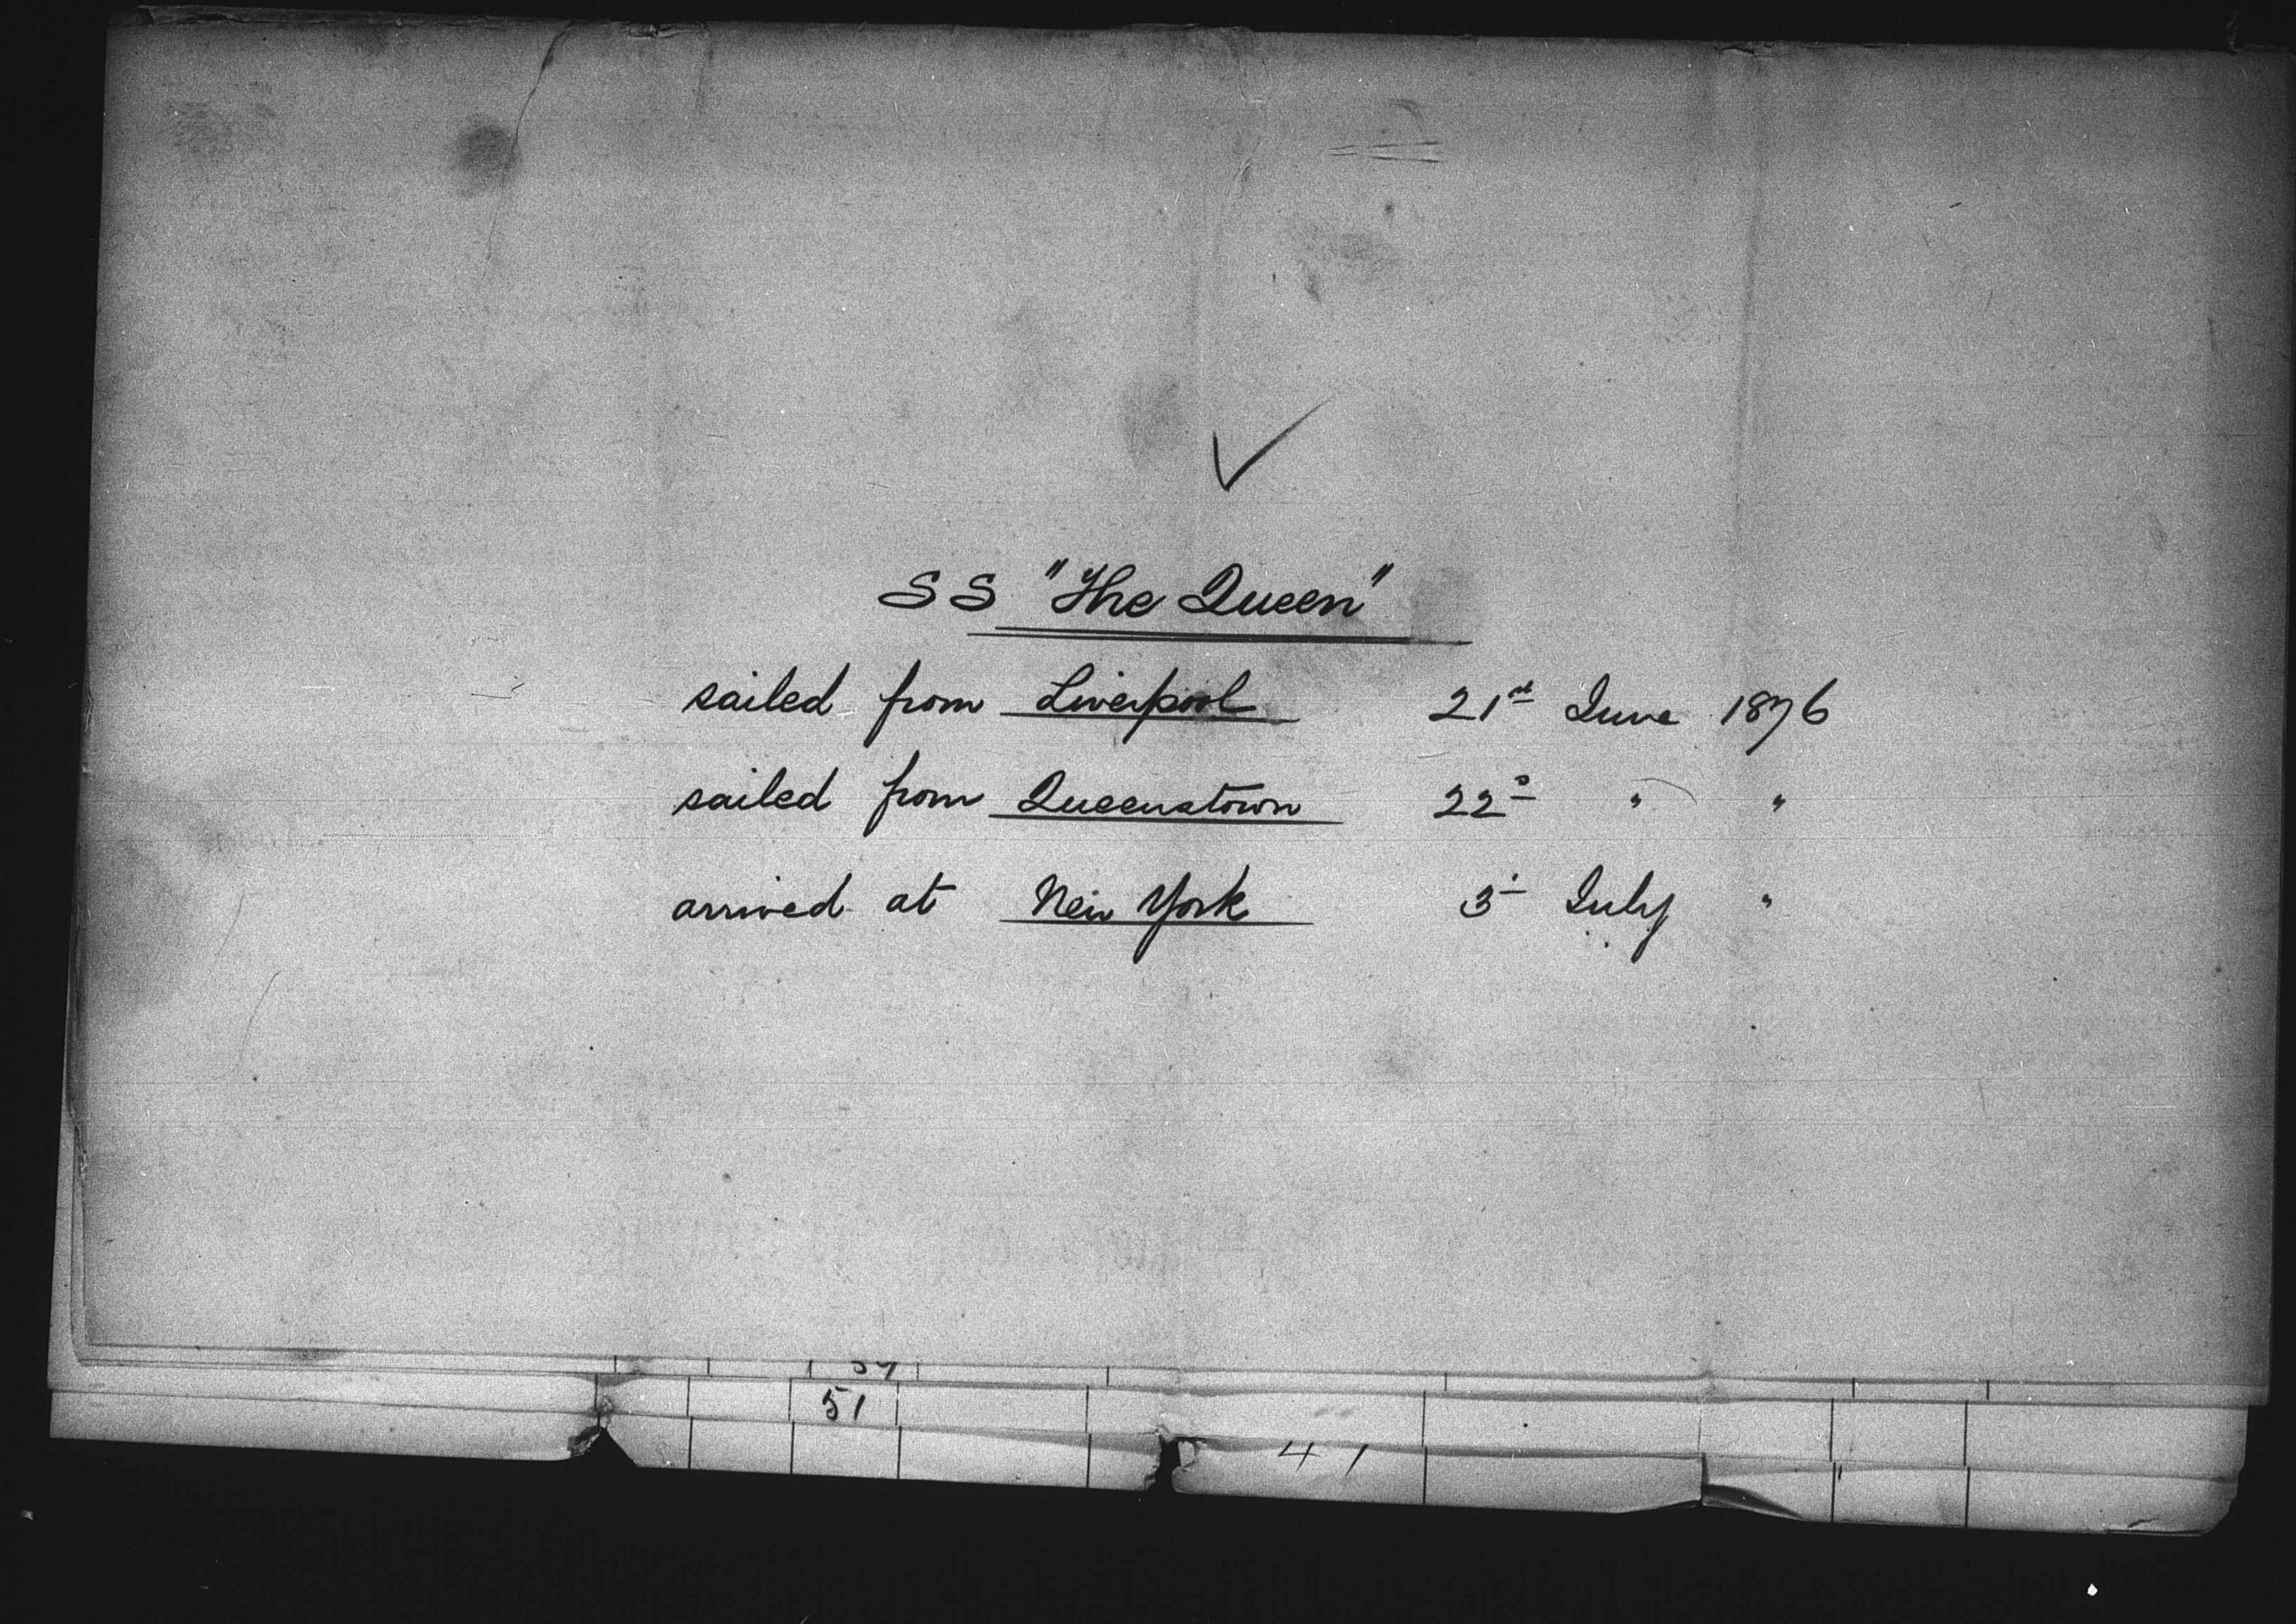 SS "The Queen"
sailed from Liverpool 21st June 1876
sailed from Queenstown 22d " "
arrived at New York 3 July "
51